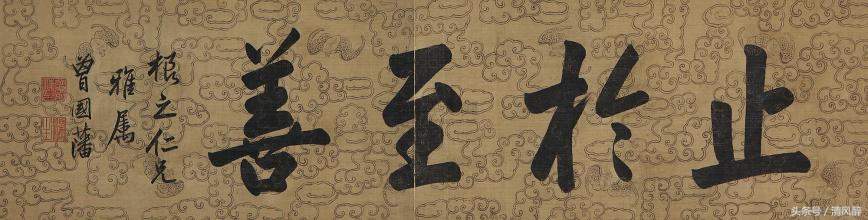 止於至善
根之仁兄
雅属
曾國藩
头条号/清风醉